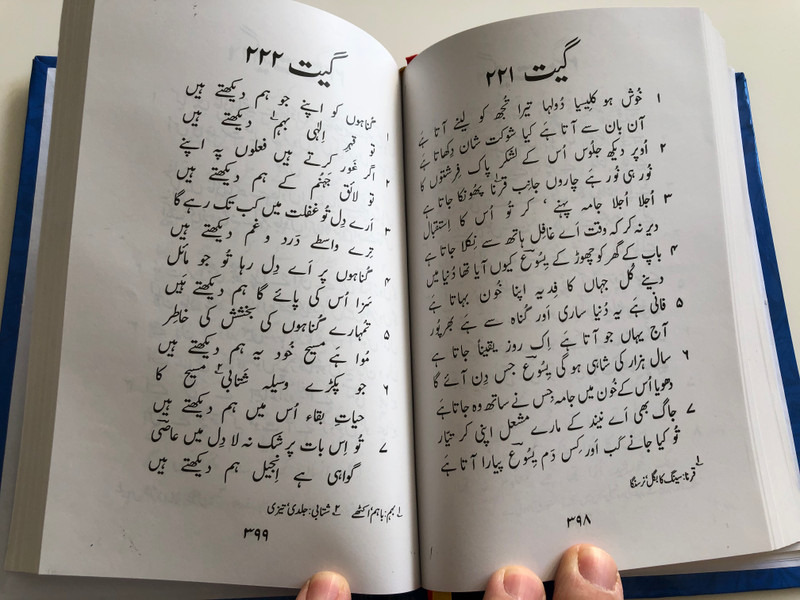 گیت ۲۲۱
۱ خُوش ہو کلیسیا دُولہا تیرا تُجھ کو لینے آتا ہَے
آن بان سے آتا ہَے کیا شوکت شان دِکھاتا ہَے
۲ اُوپر دیکھ جلُوس اُس کے لشکر پاک فرشتوں کا
نُور ہی نُور ہَے چاروں جانِب قرنا پھُونکا جاتا ہَے
۳ اُجلا اُجلا جامہ پہنے ، کر تُو اُس کا اِستقبال
دیر نہ کر کہ وقت اَے غافل ہاتھ سے نِکلا جاتا ہَے
۴ باپ کے گھر کو چھوڑ کے یِسُوعؔ کیوں آیا تھا دُنیا میں
دینے کُل جہاں کا فِدیہ اپنا خُون بہاتا ہَے
۵ فانی ہَے یہ دُنیا ساری اَور گُناہ سے ہَے بھرپُور
آج یہاں جو آتا ہَے اِک روز یقیناً جاتا ہَے
۶ سال ہزار کی شاہی ہو گی یِسُوعؔ جس دِن آئے گا
دھویا اُس کے خُون میں جامہ جِس نے ساتھ وہ جاتا ہَے
۷ جاگ بھی اَے نیند کے مارے مشعل اپنی کر تیّار
تُو کیا جانے کَب اَور کِس دَم یِسُوعؔ پیارا آتا ہَے
۱ قرنا: سینگ کا بگل، نرسنگا
۳۹۸
گیت ۲۲۲
۱ گُناہوں کو اپنے جو ہم دیکھتے ہیں
تو قہرِ اِلٰہی بہم۱ دیکھتے ہیں
۲ اگر غَور کرتے ہیں فعلوں پہ اپنے
تو لائق جہنّم کے ہم دیکھتے ہیں
۳ اَرے دِل تُو غفلت میں کب تک رہے گا
تِرے واسطے دَرد و غم دیکھتے ہیں
۴ گُناہوں پر اَے دِل رہا تُو جو مائل
سَزا اُس کی پائے گا ہم دیکھتے ہَیں
۵ تُمہارے گُناہوں کی بخشش کی خاطِر
مُوا ہَے مسیح خُود یہ ہم دیکھتے ہیں
۶ جو پکڑے وسیلہ شتابی۲ مسیح کا
حیاتِ بقاء اُس میں ہم دیکھتے ہیں
۷ تُو اِس بات پر شک نہ لا دِل میں عاصیؔ
گواہی ہے اِنجیل ہم دیکھتے ہیں
۱ بہم: باہم، اکٹھے ۲ شتابی: جلدی، تیزی
۳۹۹